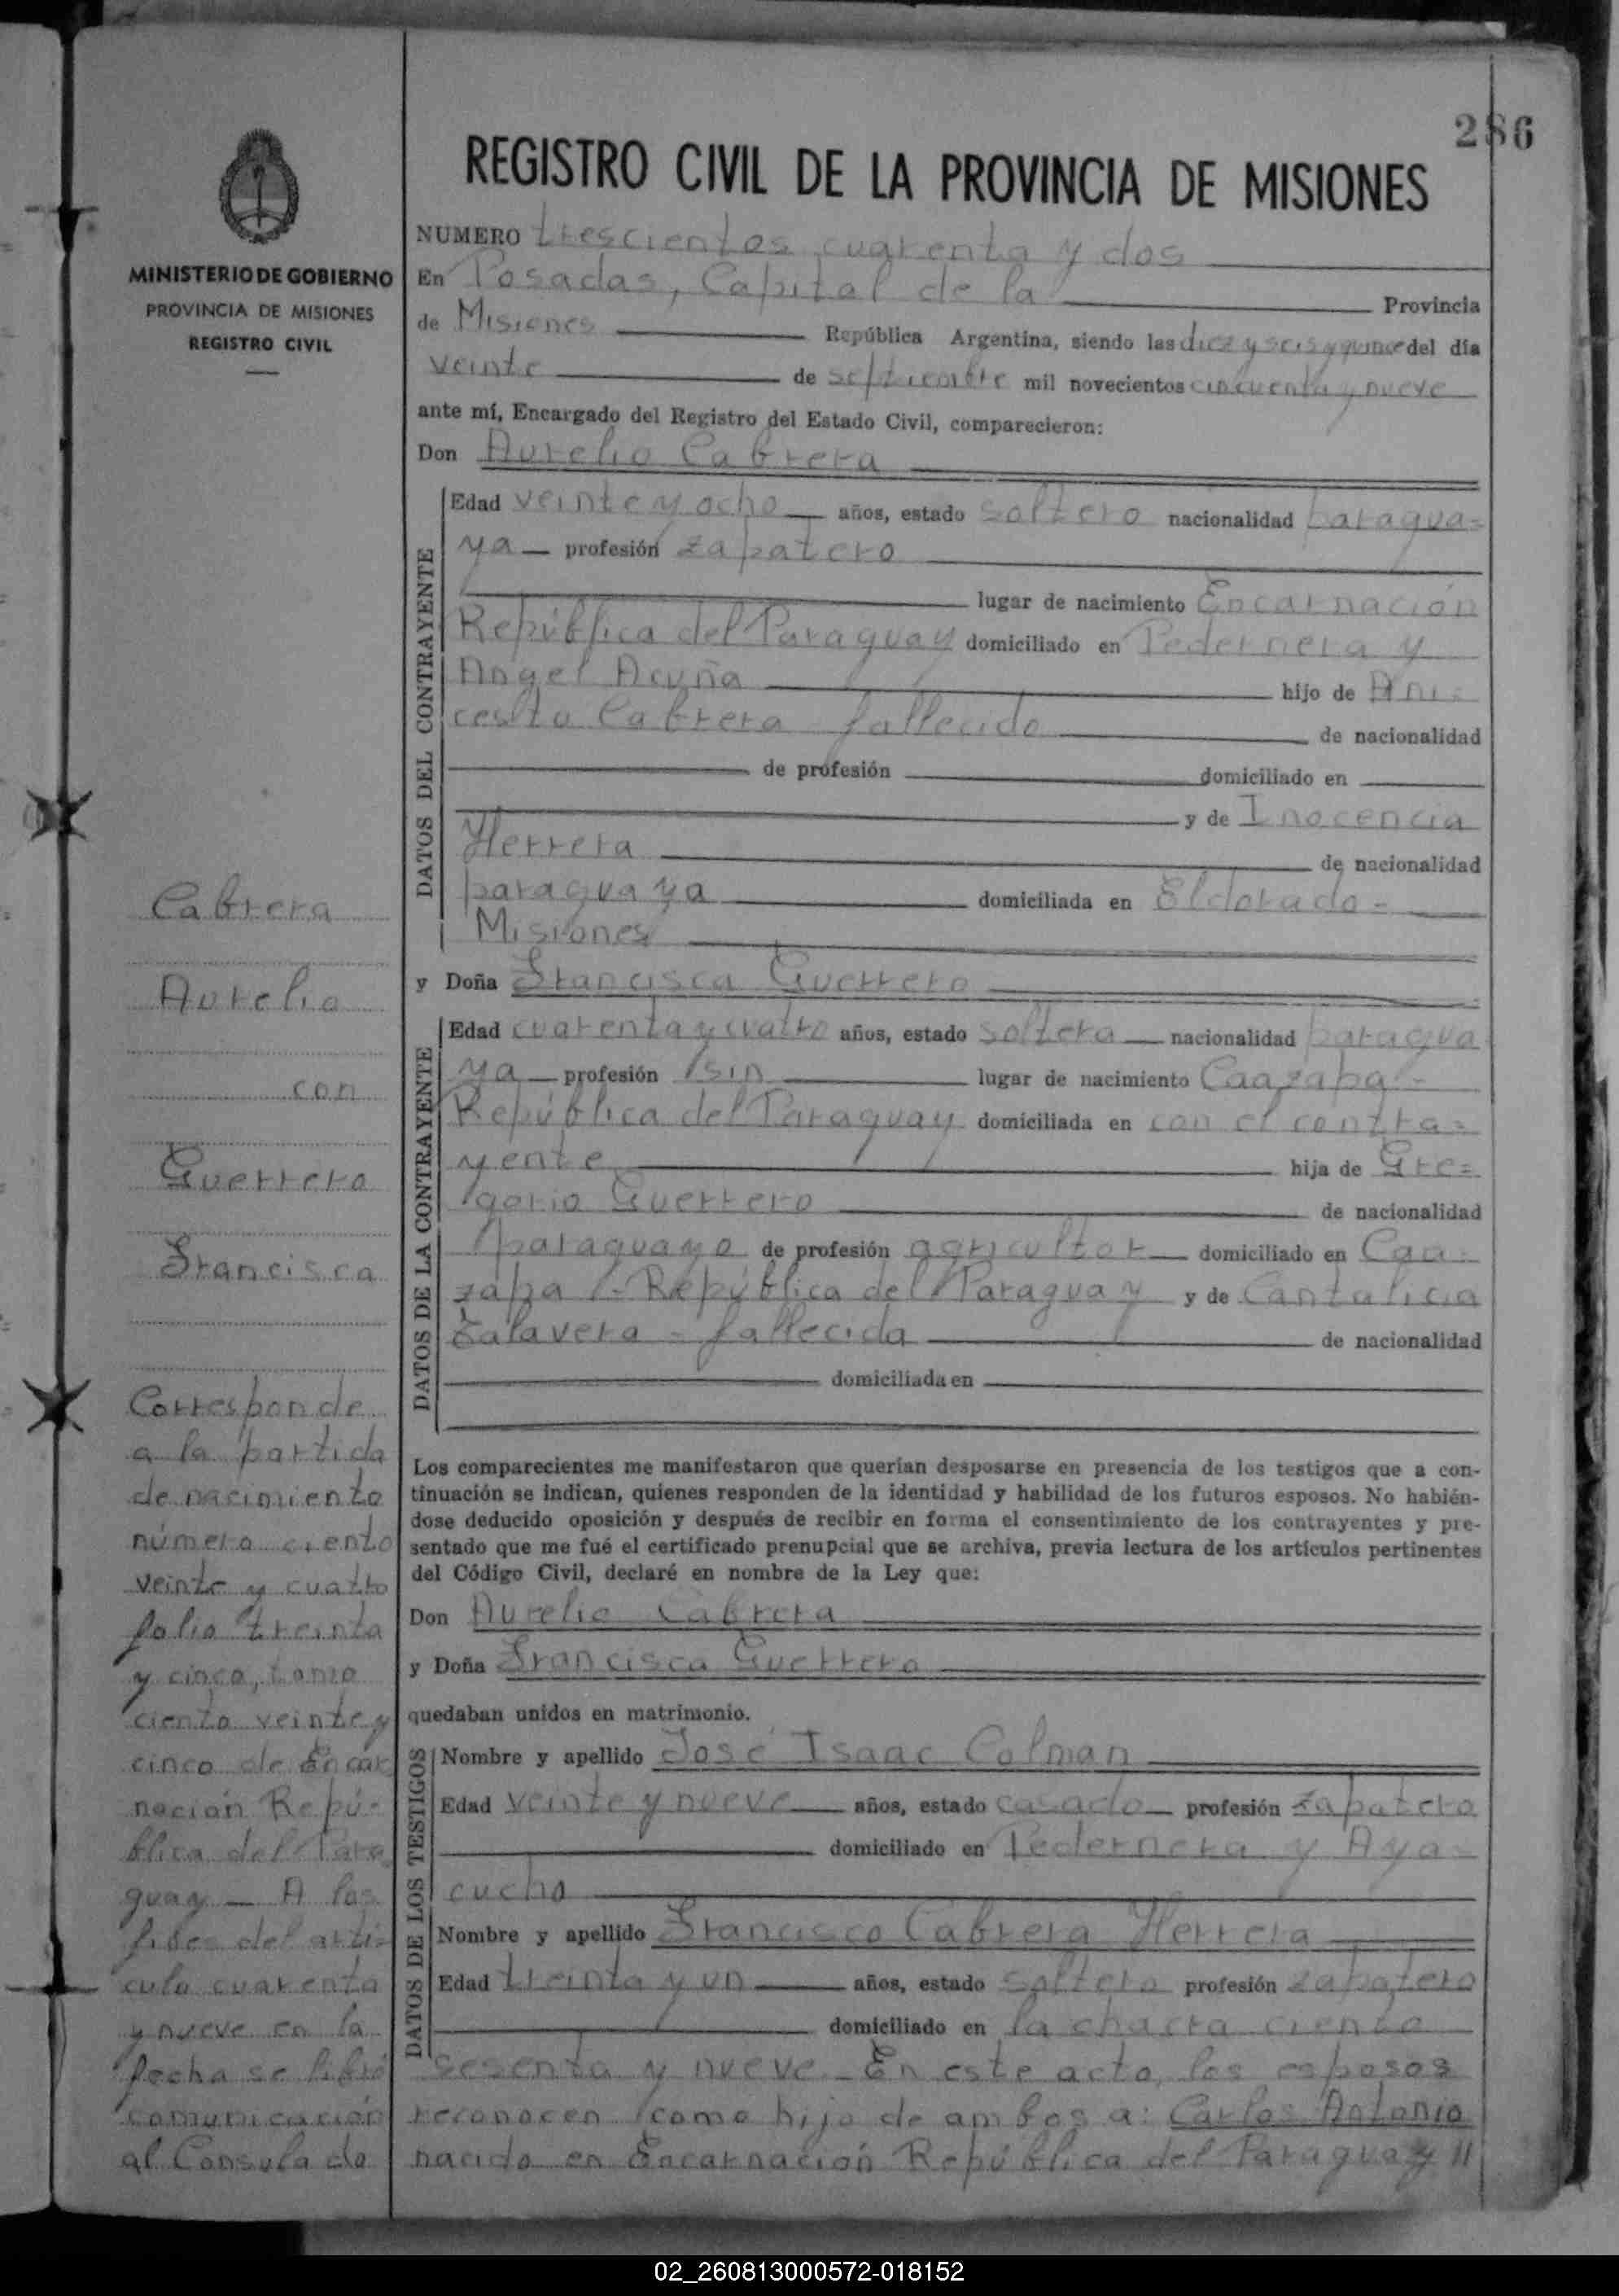 286
REGISTRO CIVIL DE LA PROVINCIA DE MISIONES
MINISTERIO DE GOBIERNO
PROVINCIA DE MISIONES
REGISTRO CIVIL
NUMERO trescientos cuarenta y dos
En Posadas, Capital de la Provincia
de Misiones República Argentina, siendo las diez y seis y quince del día
veinte de septiembre mil novecientos cincuenta y nueve
ante mí, Encargado del Registro del Estado Civil, comparecieron:
Don Aurelio Cabrera
DATOS DEL CONTRAYENTE
Edad veinte y ocho años, estado soltero nacionalidad paragua=
ya profesión zapatero
lugar de nacimiento Encarnación
República del Paraguay domiciliado en Pedernera y
Angel Acuña hijo de Ani=
cesto Cabrera fallecido de nacionalidad
de profesión domiciliado en
y de Inocencia
Herrera de nacionalidad
paraguaya domiciliada en Eldorado -
Misiones
y Doña Francisca Guerrero
DATOS DE LA CONTRAYENTE
Edad cuarenta y cuatro años, estado soltera nacionalidad paragua
ya profesión sin lugar de nacimiento Caazapa -
República del Paraguay domiciliada en con el contra=
yente hija de Gre=
gorio Guerrero de nacionalidad
paraguayo de profesión agricultor domiciliado en Caa=
zapa - República del Paraguay y de Cantalicia
Talavera = fallecida de nacionalidad
domiciliada en
Los comparecientes me manifestaron que querían desposarse en presencia de los testigos que a con-
tinuación se indican, quienes responden de la identidad y habilidad de los futuros esposos. No habién-
dose deducido oposición y después de recibir en forma el consentimiento de los contrayentes y pre-
sentado que me fué el certificado prenupcial que se archiva, previa lectura de los artículos pertinentes
del Código Civil, declaré en nombre de la Ley que:
Don Aurelio Cabrera
y Doña Francisca Guerrero
quedaban unidos en matrimonio.
DATOS DE LOS TESTIGOS
Nombre y apellido José Isaac Colman
Edad veinte y nueve años, estado casado profesión zapatero
domiciliado en Pedernera y Aya=
cucho
Nombre y apellido Francisco Cabrera Herrera
Edad treinta y un años, estado soltero profesión zapatero
domiciliado en la chacra ciento
sesenta y nueve - En este acto, los esposos
reconocen como hijo de ambos a: Carlos Antonio
nacido en Encarnación República del Paraguay //
Cabrera
Aurelio
con
Guerrero
Francisca
Corresponde
a la partida
de nacimiento
número ciento
veinte y cuatro
folio treinta
y cinco, tomo
ciento veinte y
cinco de Encar
nación Repú-
blica del Para
guay - A los
fides del artí=
culo cuarenta
y nueve en la
fecha se libró
comunicación
al Consulado
02_260813000572-018152